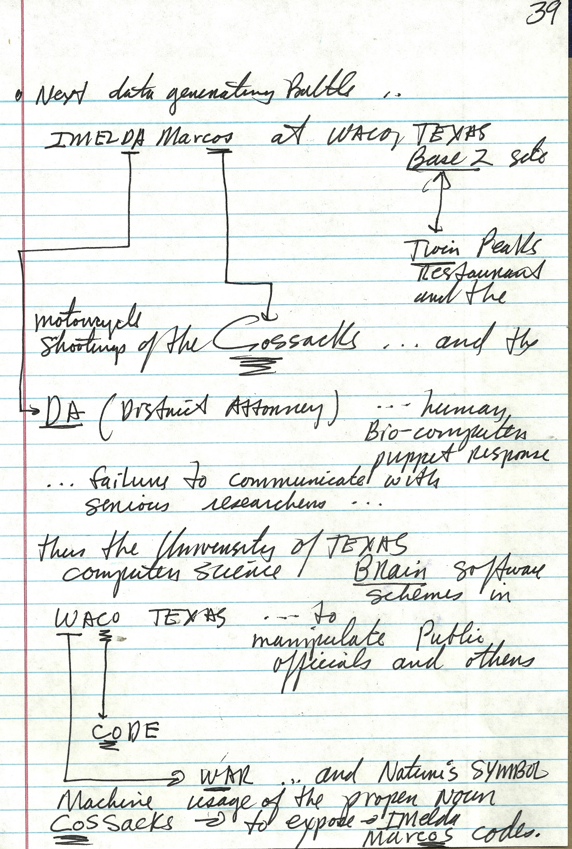 39
• Next data generating Battle ..
IMELDA Marcos at WACO, TEXAS
Base 2 sets
Twin Peaks
Restaurant
and the
motorcycle
shootings of the Cossacks ... and the
DA (District Attorney) ... human
Bio-computer
puppet response
... failure to communicate with
serious researchers ...
thus the University of TEXAS
computer science BRain software
schemes in
WACO TEXAS ... to
manipulate Public
officials and others
CODE
WAR ... and Nature's SYMBOL
Machine usage of the proper Noun
CosSacks → to expose → IMelda
Marcos codes.